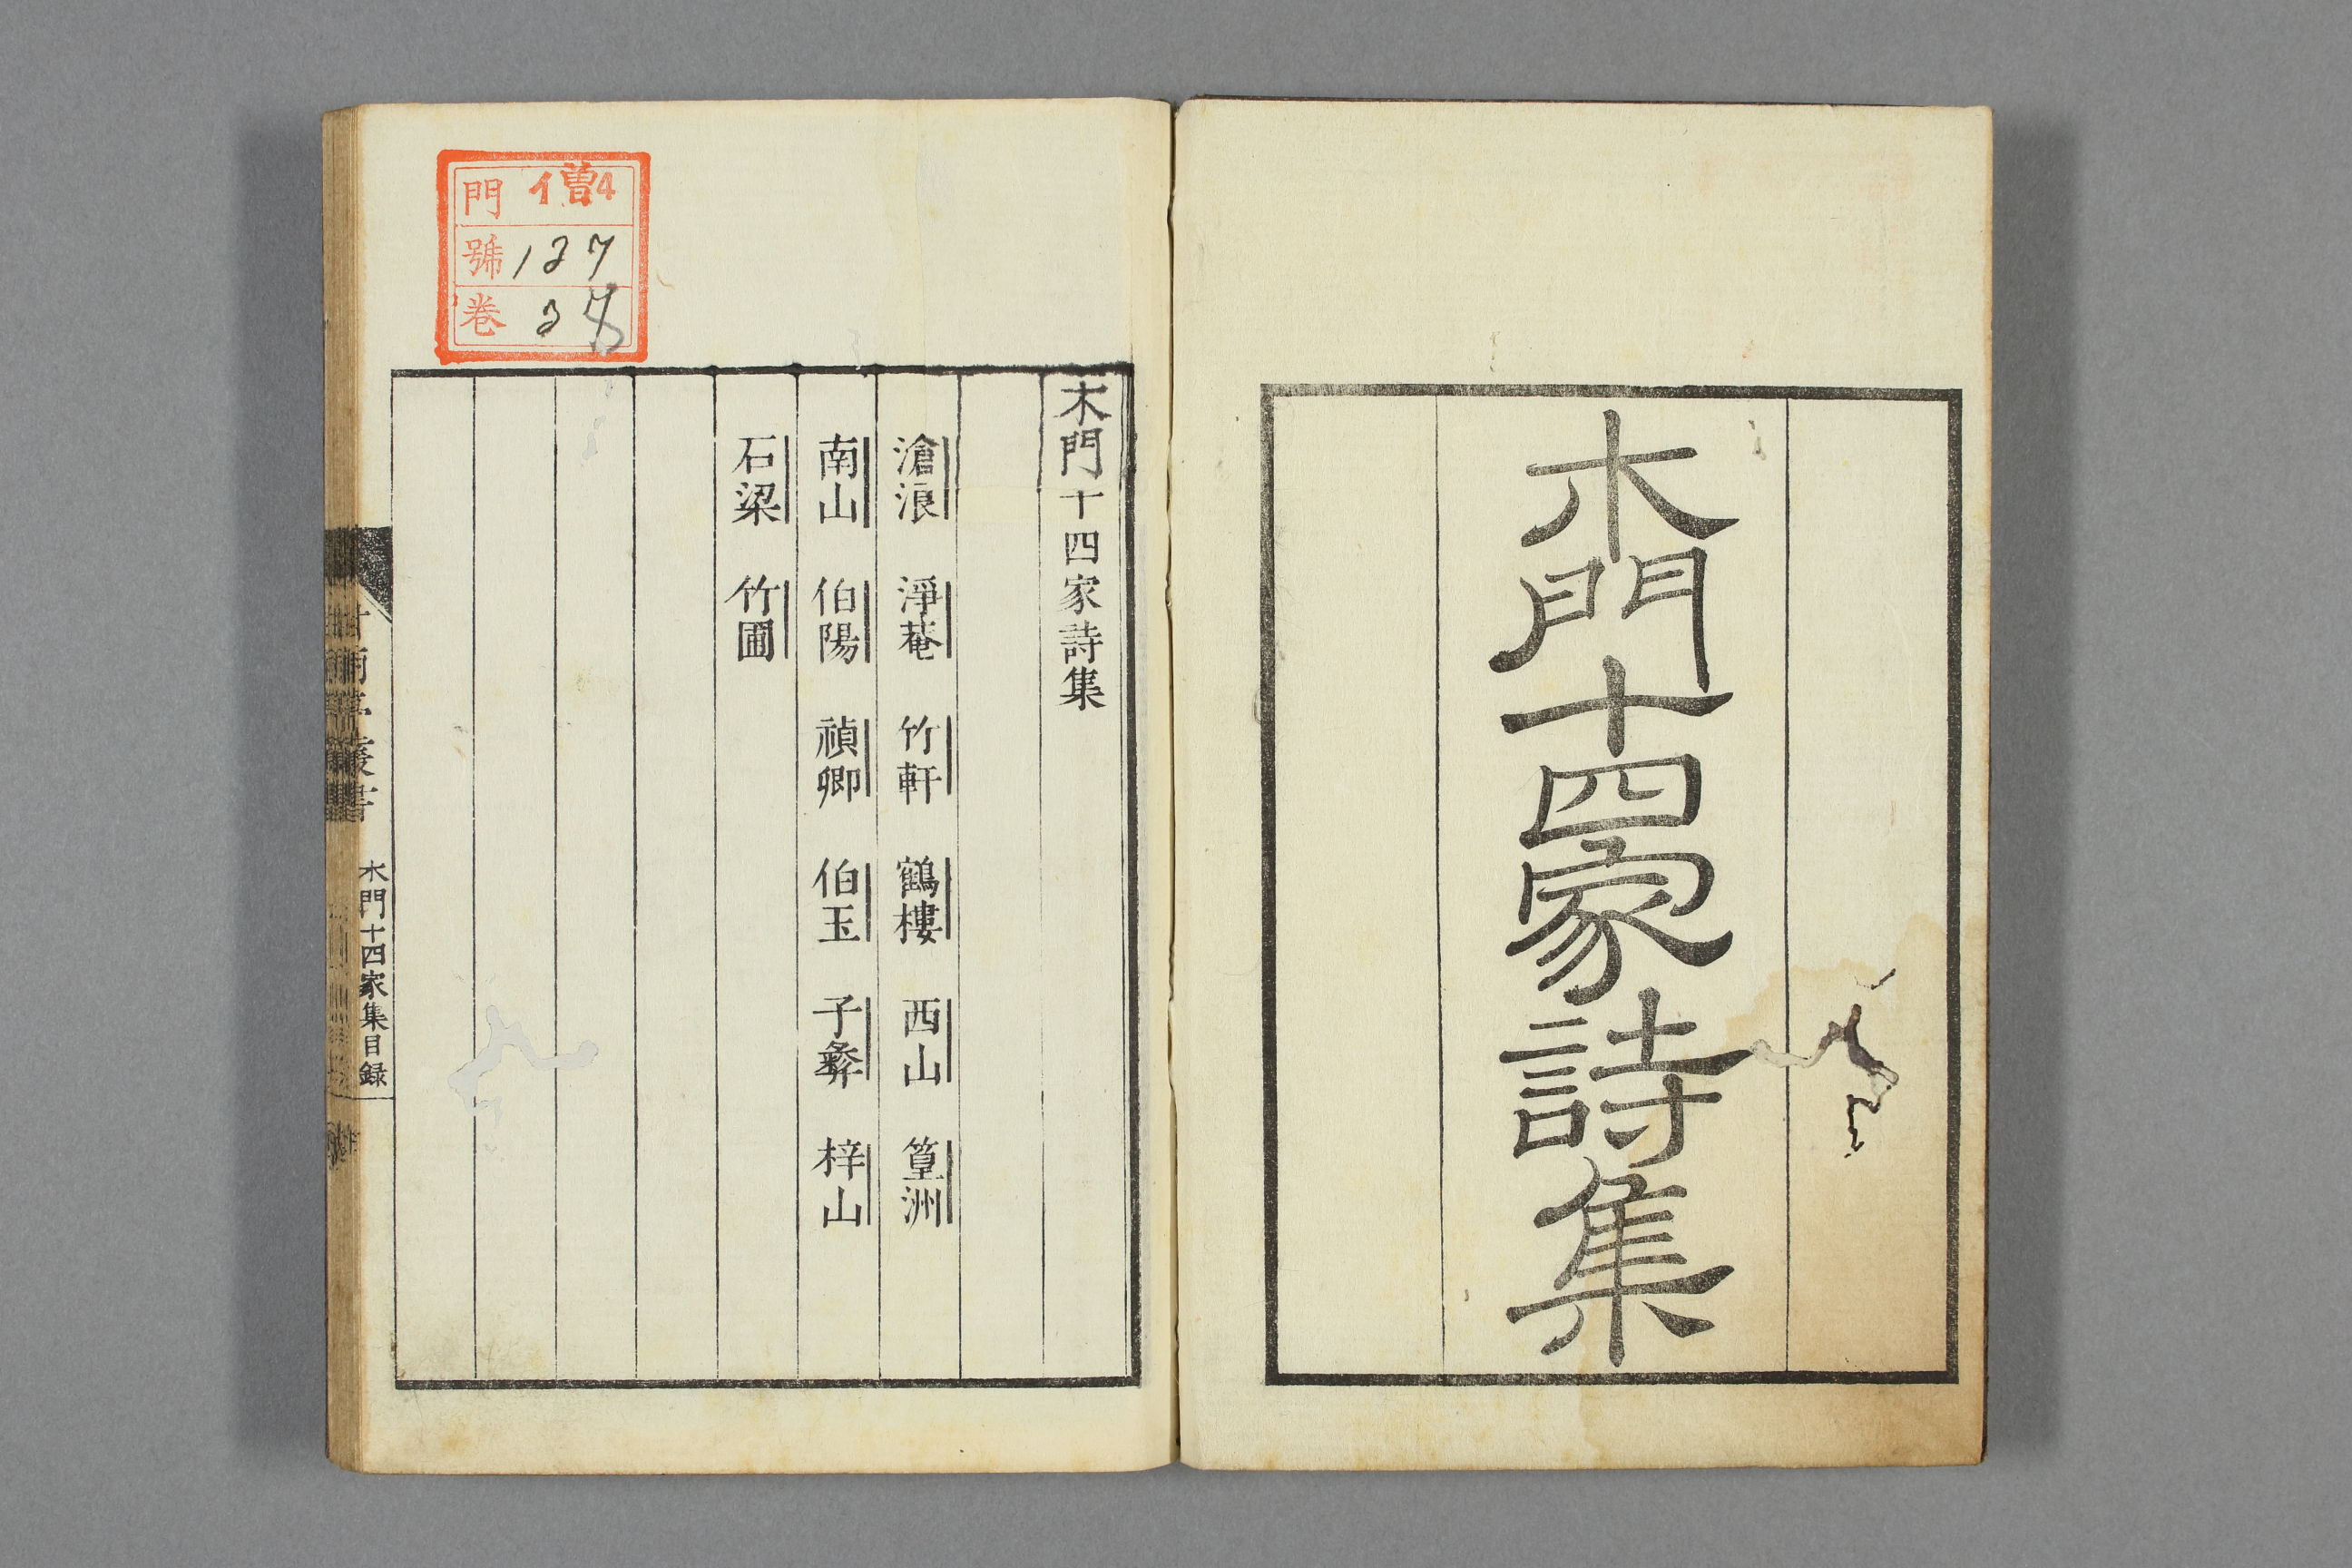 木門十四家詩集
門 僧4
號 137
卷
木門十四家詩集
滄浪 淨菴 竹軒 鶴樓 西山 篁洲
南山 伯陽 禎卿 伯玉 子彝 梓山
石梁 竹圃
甘雨亭叢書
木門十四家集目録